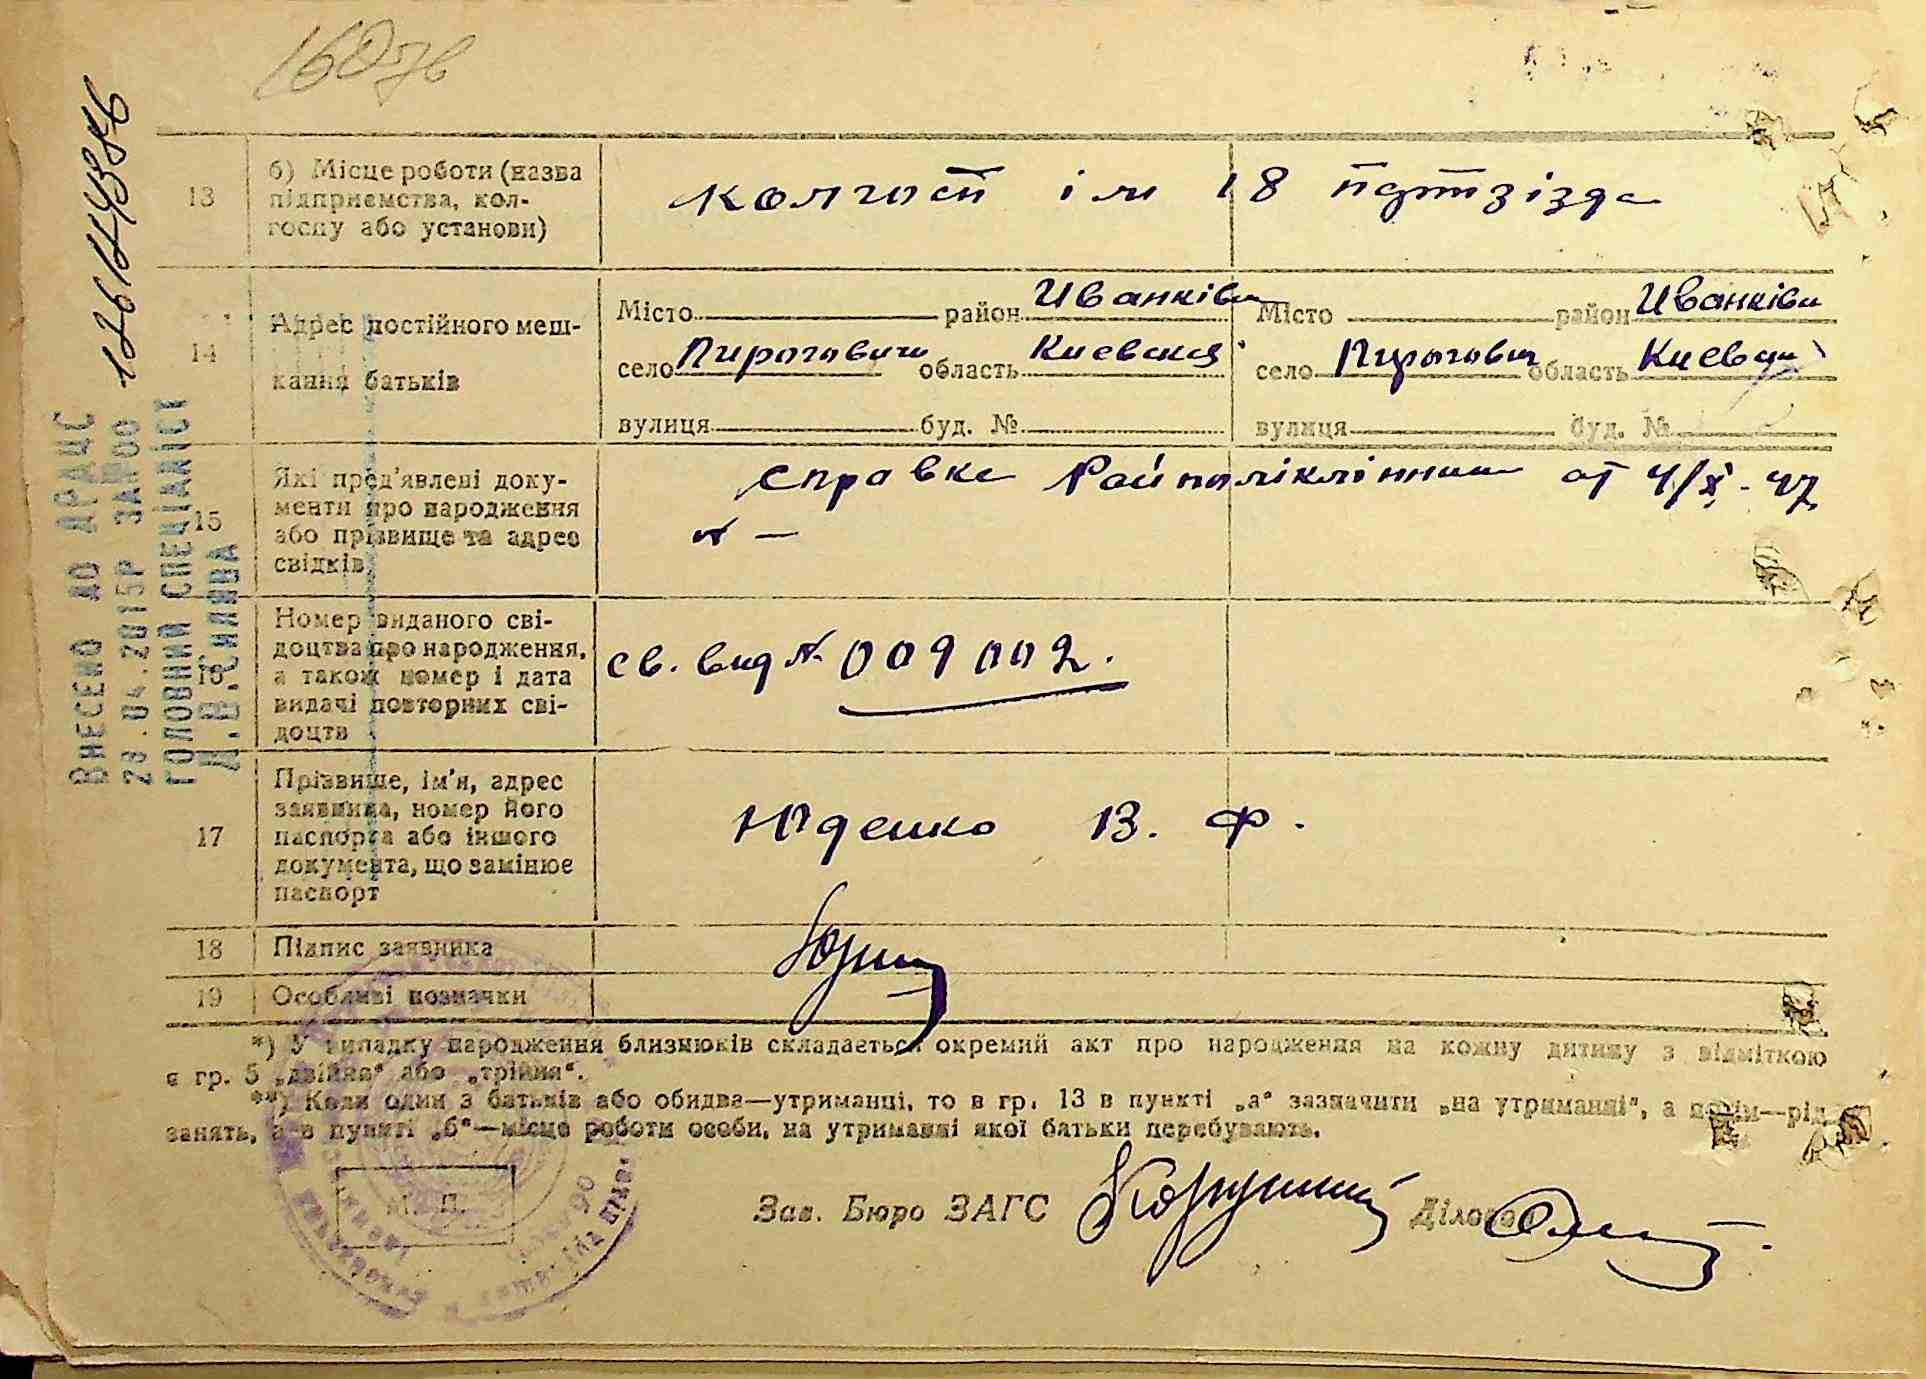 13
б) Місце роботи (назва
підприємства, кол-
госпу або установи)
колгосп ім 18 партзізда
14
Адрес постійного меш-
кання батьків
Місто район Иванків
село Пироговичи область Киевская
вулиця буд. №
Місто район Иванків
село Пирогович область
вулиця буд. №
15
Які пред'явлені доку-
менти про народження
або прізвище та адрес
свідків
справка Райполіклінники от 4/X-47
№ —
16
Номер виданого сві-
доцтва про народження,
а також номер і дата
видачі повторних сві-
доцтв
св. вид № 009002.
17
Прізвище, ім'я, адрес
заявника, номер його
паспорта або іншого
документа, що замінює
паспорт
Юденко В. Ф.
18
Підпис заявника
19
Особливі позначки
*) У випадку народження близнюків складається окремий акт про народження на кожну дитину з відміткою
в гр. 5 „двійня“ або „трійня“.
**) Коли один з батьків або обидва—утриманці, то в гр. 13 в пункті „а“ зазначити „на утриманні“, а потім—рід
занять, а в пункті „б“—місце роботи особи, на утриманні якої батьки перебувають.
М. П.
Зав. Бюро ЗАГС
Внесено до ДРАЦС
23.04.2015р за №00
12614438 56
головний спеціаліст